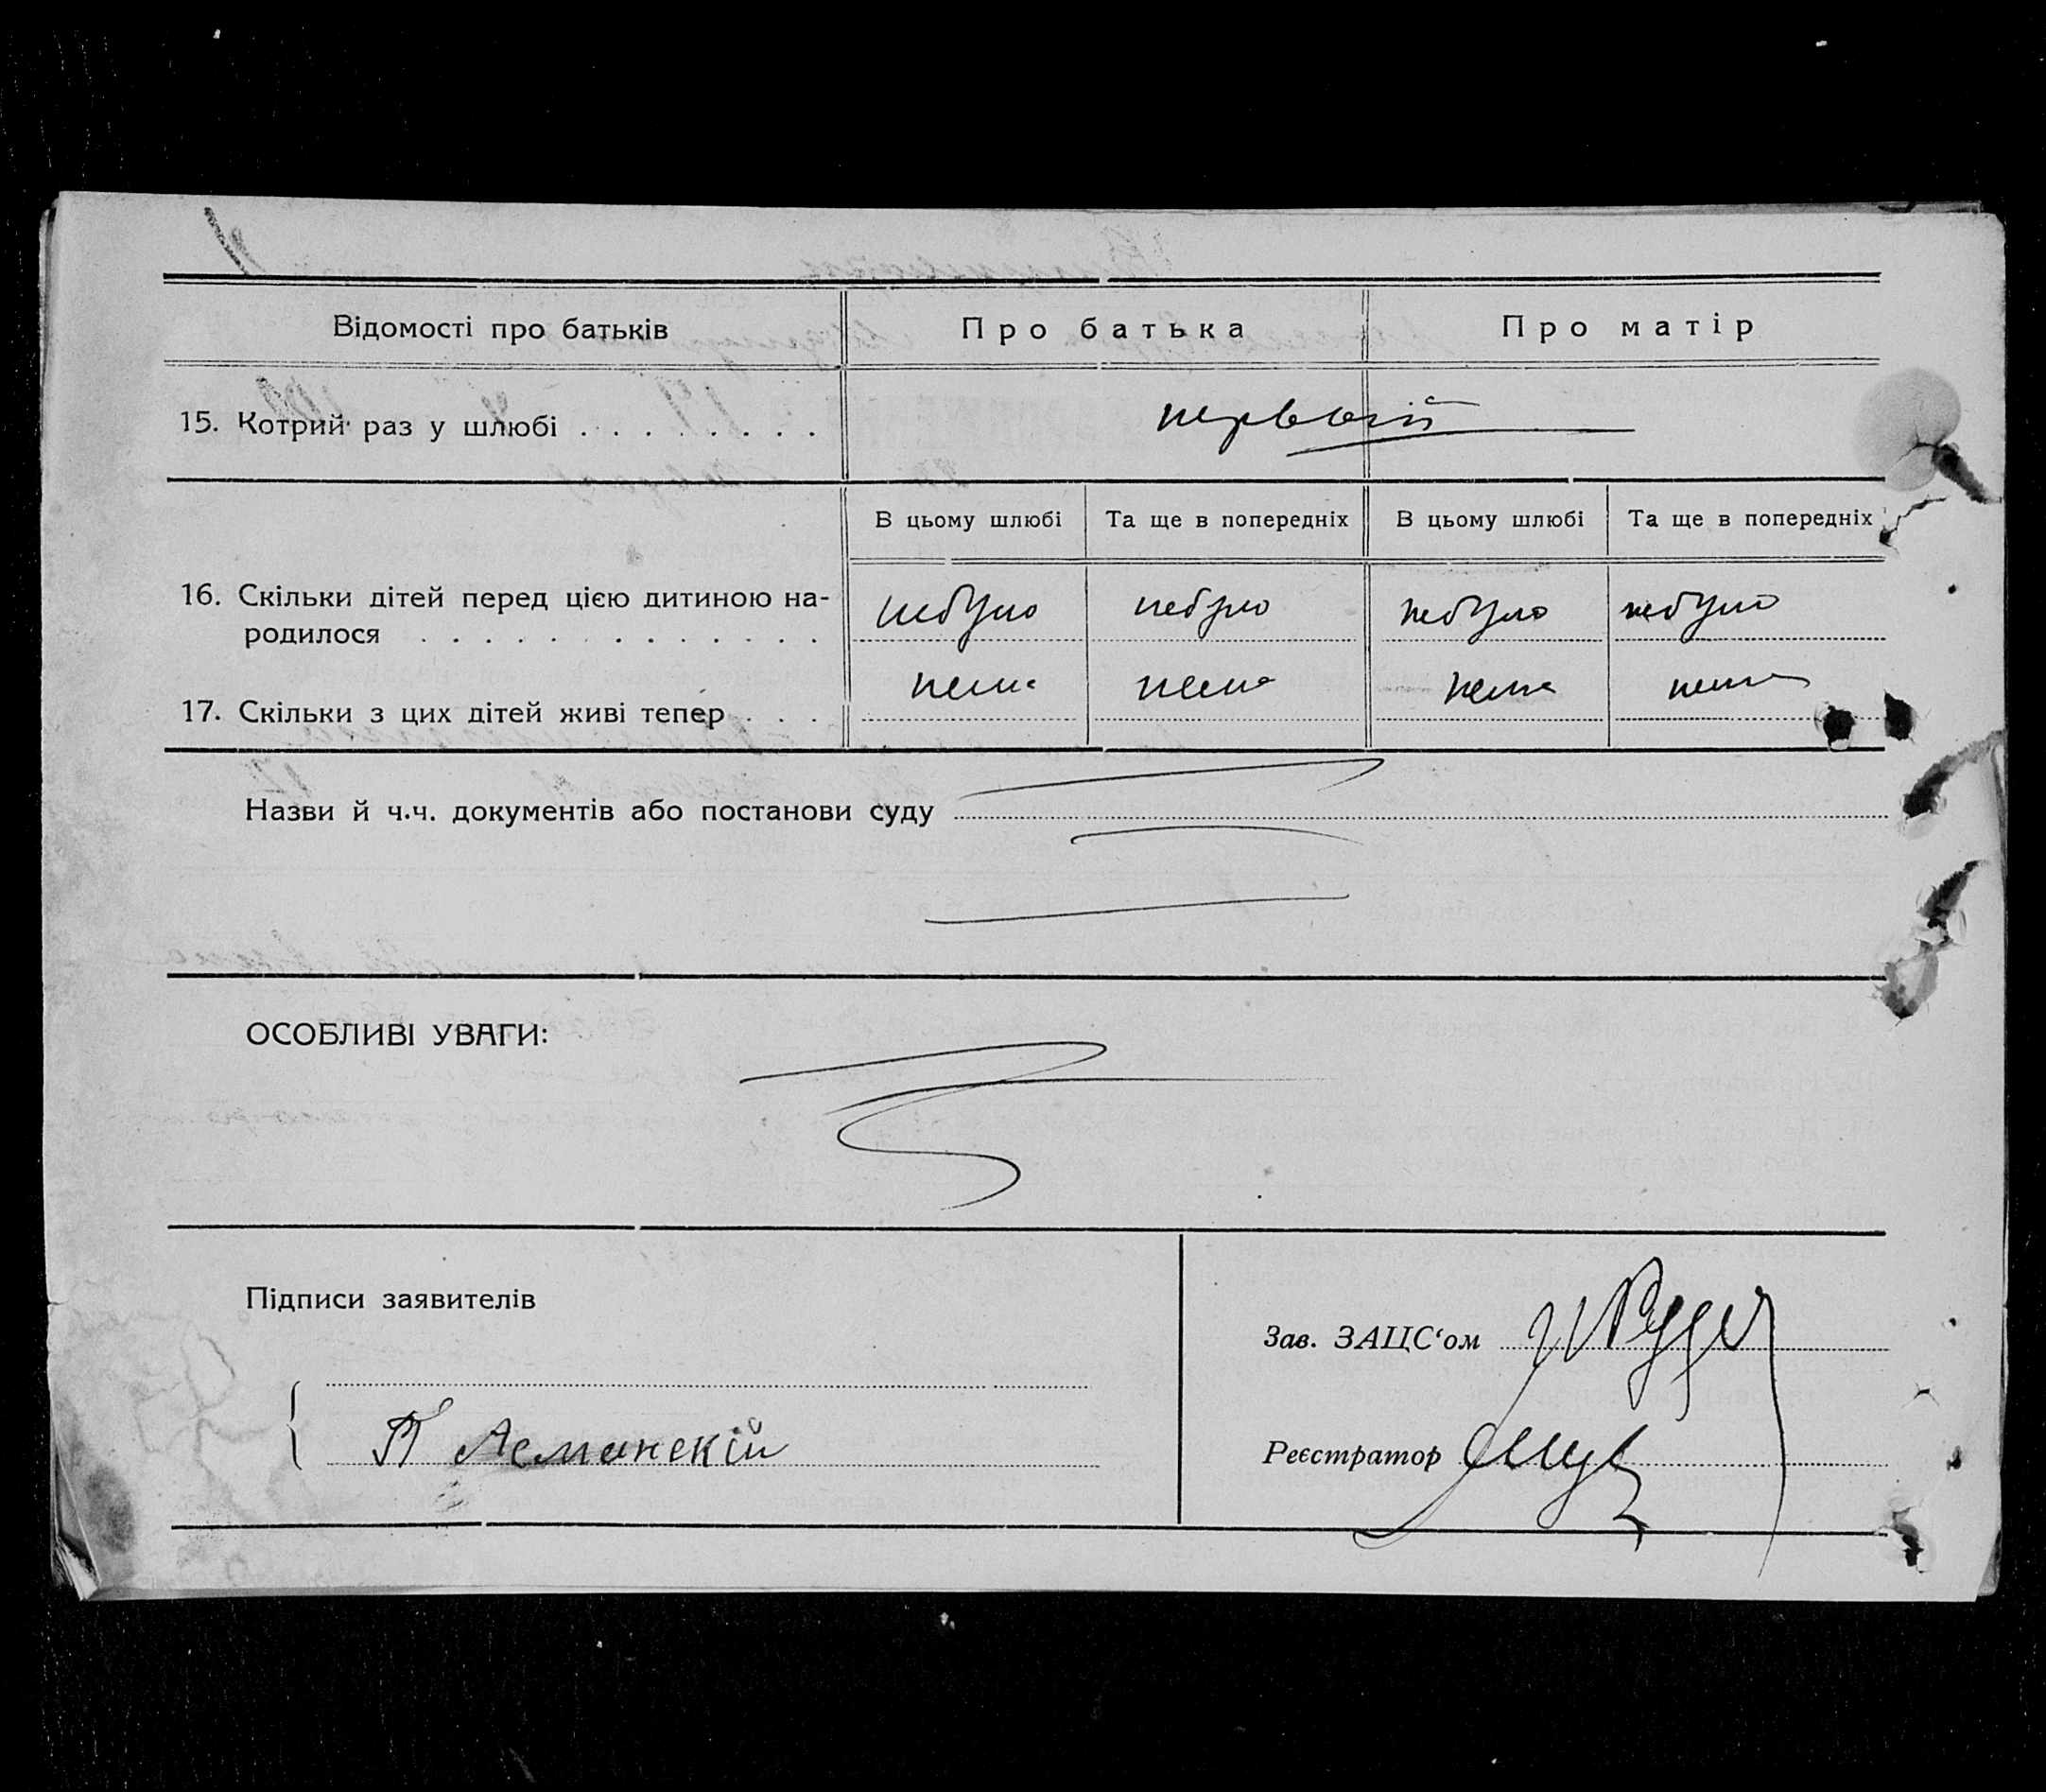 Відомості про батьків Про батька Про матір
15. Котрий раз у шлюбі . . . . . . . . первый
В цьому шлюбі Та ще в попередніх В цьому шлюбі Та ще в попередніх
16. Скільки дітей перед цією дитиною на-
родилося . . . . . . . . . . . . . небуло небуло небуло небуло
17. Скільки з цих дітей живі тепер . . . нема нема нема нема
Назви й ч.ч. документів або постанови суду
ОСОБЛИВІ УВАГИ:
Підписи заявителів
Зав. ЗАЦС‘ом
П Асманскій
Реєстратор